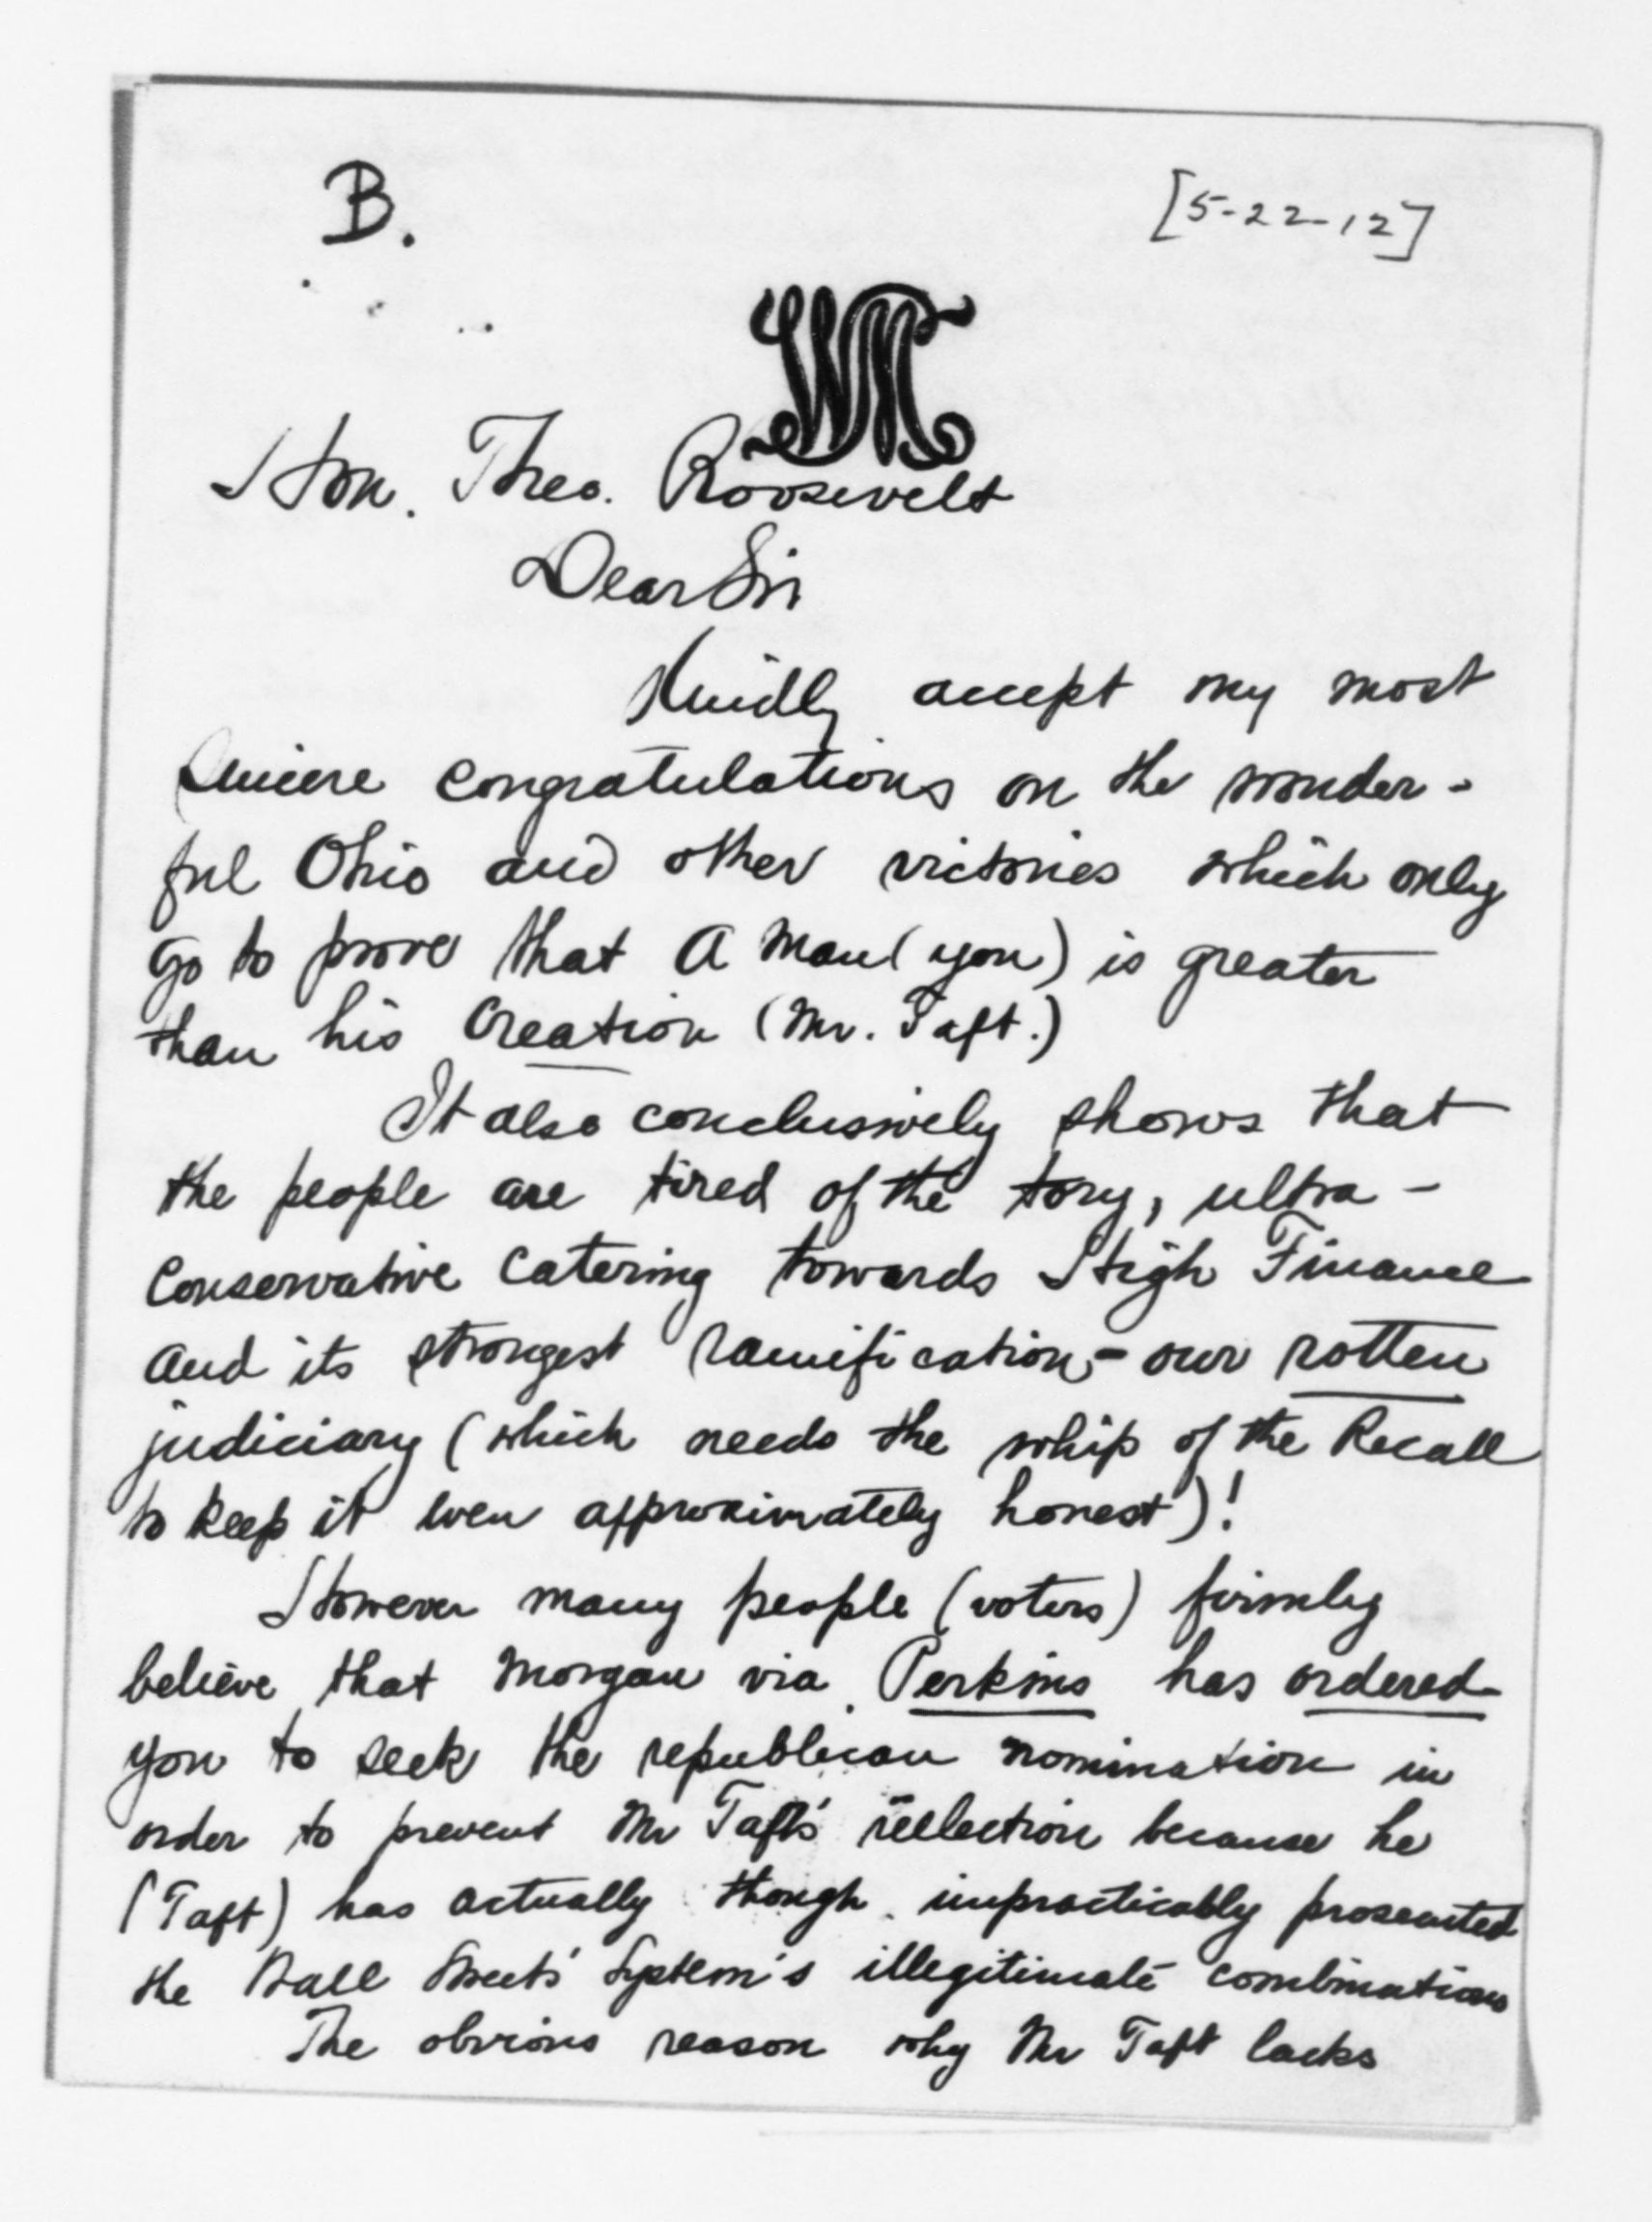 B.
[5-22-12]
WM
Hon. Theo. Roosevelt
Dear Sir
Kindly accept my most
sincere congratulations on the wonder-
ful Ohio and other victories which only
go to prove that a man (you) is greater
than his creation (Mr. Taft.)
It also conclusively shows that
the people are tired of the tory, ultra-
conservative catering towards High Finance
and its strongest ramification - our rotten
judiciary (which needs the whip of the Recall
to keep it even approximately honest)!
However many people (voters) firmly
believe that Morgan via Perkins has ordered
you to seek the republican nomination in
order to prevent Mr Taft's reelection because he
(Taft) has actually though impracticably prosecuted
the Wall Streets' System's illegitimate combinations
The obvious reason why Mr Taft lacks